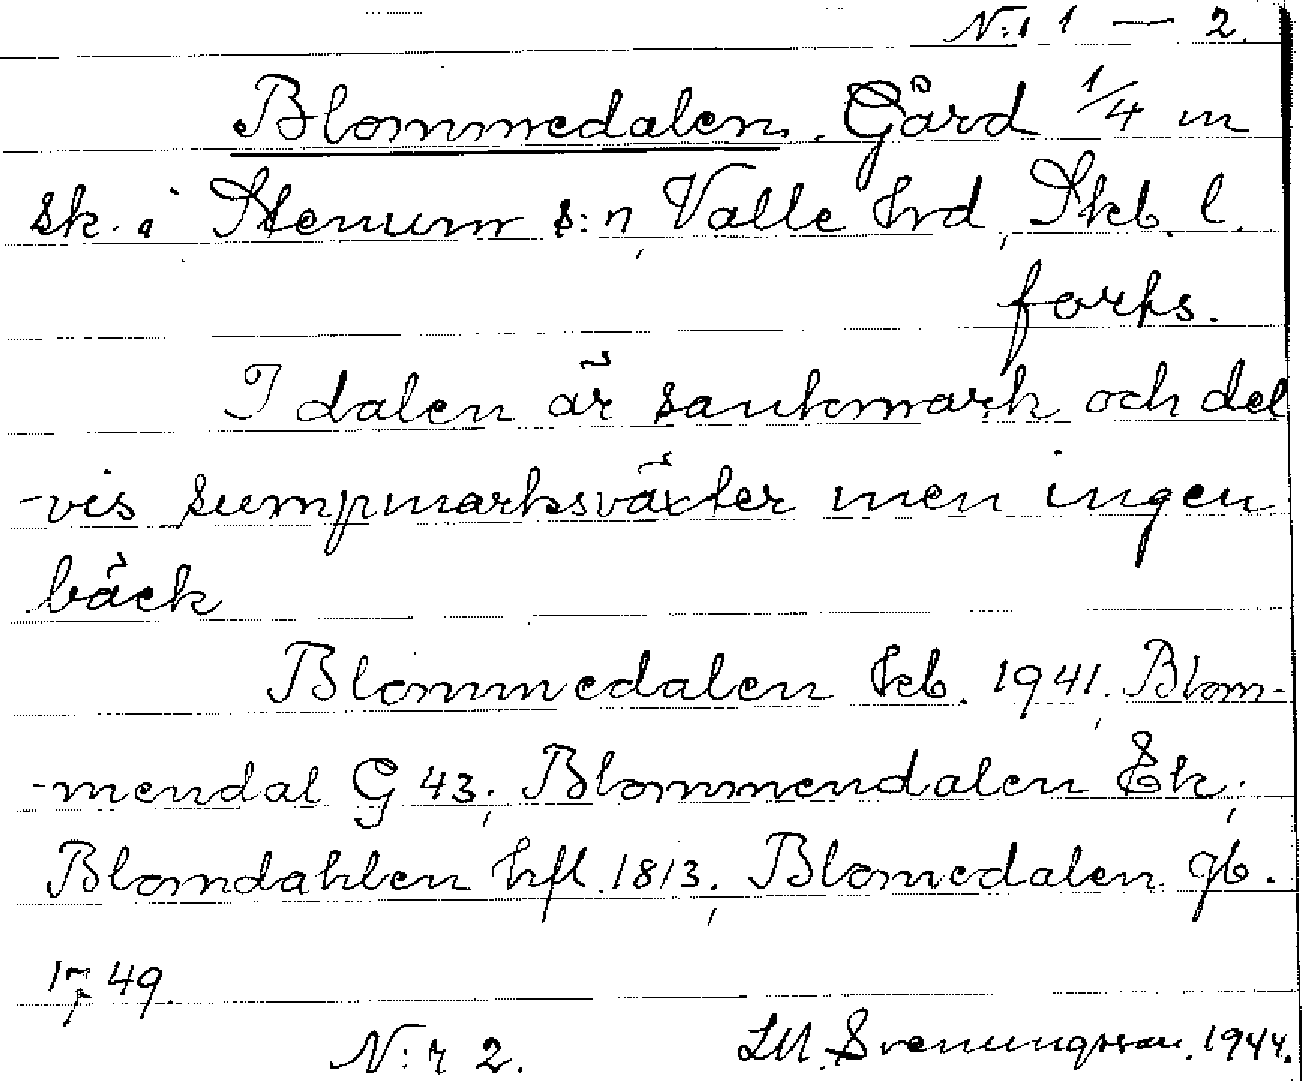 N:r 1 — 2.
Blommedalen. Gård 1/4 m
sk. i Stenum s:n, Valle hrd, Skb. l.
forts.
I dalen är sankmark och del
-vis sumpmarksväxter men ingen
bäck
Blommedalen kb. 1941, Blom-
-mendal G 43; Blommendalen Ek;
Blomdahlen hfl. 1813; Blomedalen gb.
1749.
N:r 2. LM. Svenungsson. 1944.